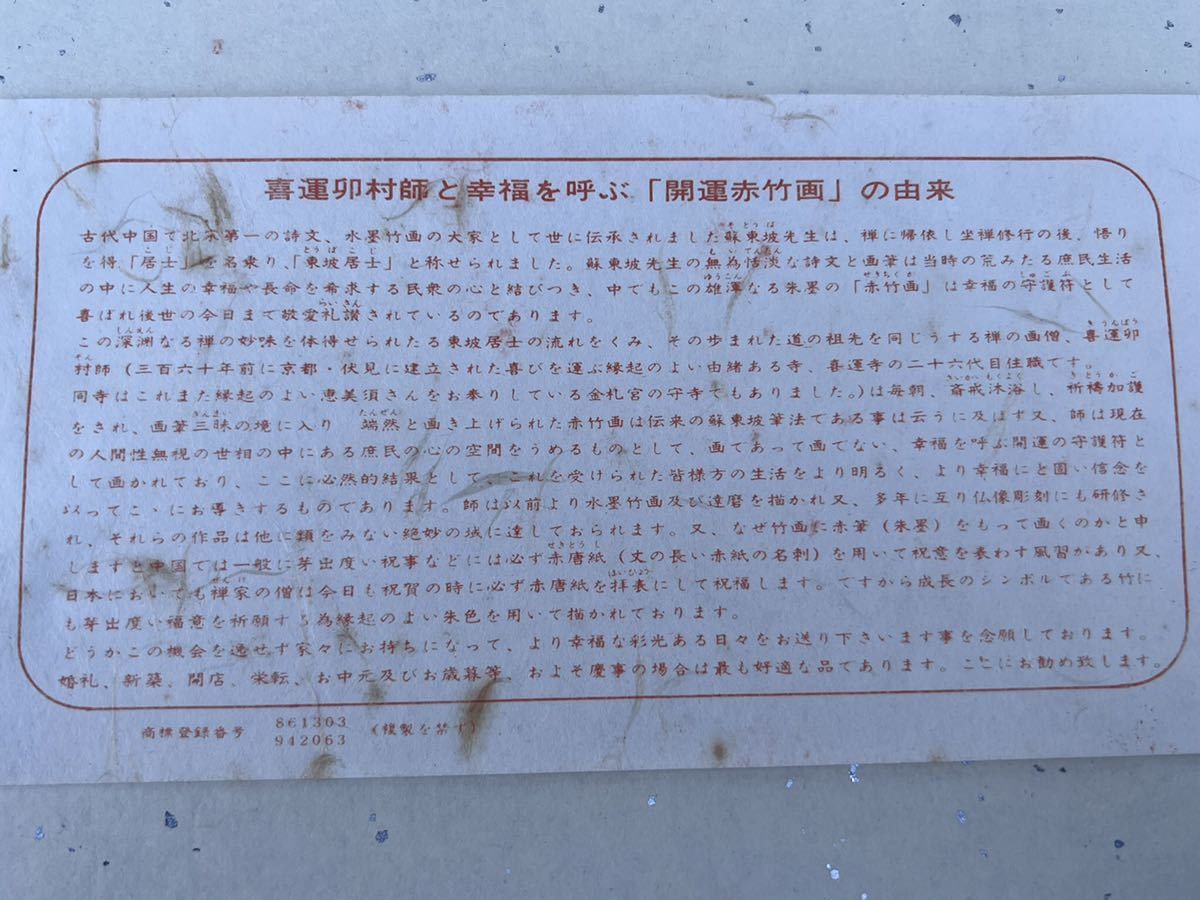 喜運卯村師と幸福を呼ぶ「開運赤竹画」の由来
古代中国で北宋第一の詩文、水墨竹画の大家として世に伝承されました蘇東坡先生は、禅に帰依し坐禅修行の後、悟り
を得「居士」を名乗り、「東坡居士」と称せられました。蘇東坡先生の無為恬淡な詩文と画筆は当時の荒みたる庶民生活
の中に人生の幸福や長命を希求する民衆の心と結びつき、中でもこの雄渾なる朱墨の「赤竹画」は幸福の守護符として
喜ばれ後世の今日まで敬愛礼讃されているのであります。
この深淵なる禅の妙味を体得せられたる東坡居士の流れをくみ、その歩まれた道の祖先を同じうする禅の画僧、喜運卯
村師(三百六十年前に京都・伏見に建立された喜びを運ぶ縁起のよい由緒ある寺、喜運寺の二十六代目住職です。
同寺はこれまた縁起のよい恵美須さんをお奉りしている金札宮の守寺でもありました。)は毎朝、斎戒沐浴し、祈祷加護
をされ、画筆三昧の境に入り 端然と画き上げられた赤竹画は伝来の蘇東坡筆法である事は云うに及ばず又、師は現在
の人間性無視の世相の中にある庶民の心の空間をうめるものとして、画であって画でない、幸福を呼ぶ開運の守護符と
して画かれており、ここに必然的結果として、これを受けられた皆様方の生活をより明るく、より幸福にと固い信念を
以ってこゝにお導きするものであります。師は以前より水墨竹画及び達磨を描かれ又、多年に亙り仏像彫刻にも研修さ
れ、それらの作品は他に類をみない絶妙の域に達しておられます。又、なぜ竹画に赤筆(朱墨)をもって画くのかと申
しますと中国では一般に芽出度い祝事などには必ず赤唐紙(丈の長い赤紙の名刺)を用いて祝意を表わす風習があり又、
日本においても禅家の僧は今日も祝賀の時に必ず赤唐紙を拝表にして祝福します。ですから成長のシンボルである竹に
も芽出度い福意を祈願する為縁起のよい朱色を用いて描かれております。
どうかこの機会を逸せず家々にお持ちになって、より幸福な彩光ある日々をお送り下さいます事を念願しております。
婚礼、新築、開店、栄転、お中元及びお歳暮等、およそ慶事の場合は最も好適な品であります。ここにお勧め致します。
商標登録番号 861303
942063 (複製を禁ず)